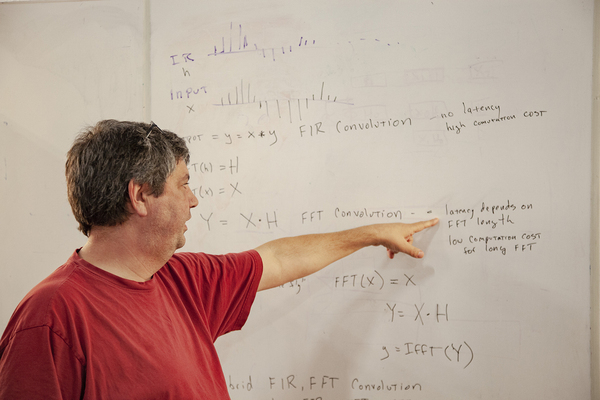 IR
h
INPUT
x
= y = x * y FIR Convolution
no latency
high computation cost
T(h) = H
T(x) = X
Y = X · H FFT Convolution - -
latency depends on
FFT length
low computation cost
for long FFT
FFT(X) = X
Y = X · H
y = Ifft(Y)
brid FIR, FFT Convolution